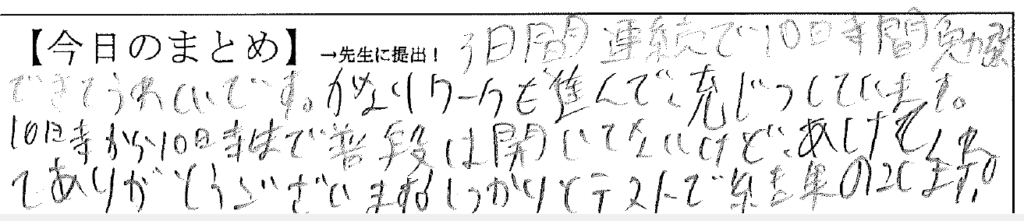 【今日のまとめ】→先生に提出！ 3日間連続で10時間勉強
できてうれしいです。かなりワークも進んで、充じつしています。
10時から10時まで普段は開いてないけど、あけてくれ
てありがとうございます。しっかりとテストで結果のこします。